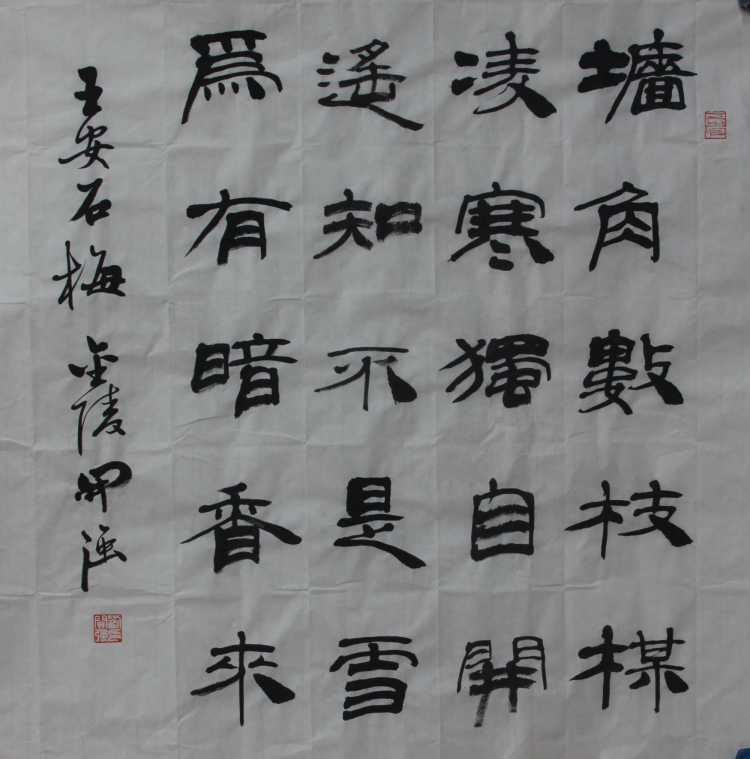 墻角數枝楳
凌寒獨自開
遙知不是雪
爲有暗香來
王安石梅 金陵